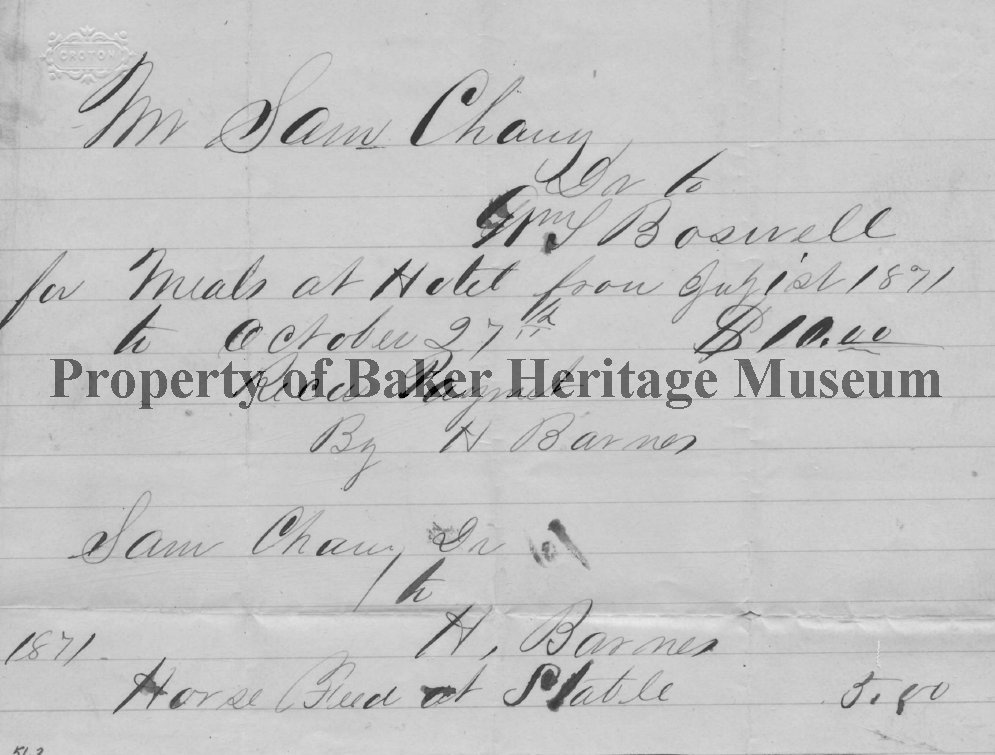 CROTON
Mr Sam Chany
Dr to
Wm S Boswell
for Meals at Hotel from July 1st 1871
to October 27th $10.00
Property of Baker Heritage Museum
Recd Paymt
By H Barnes
Sam Chany Dr
to
H, Barnes
1871
Horse Feed at Stable 5.00